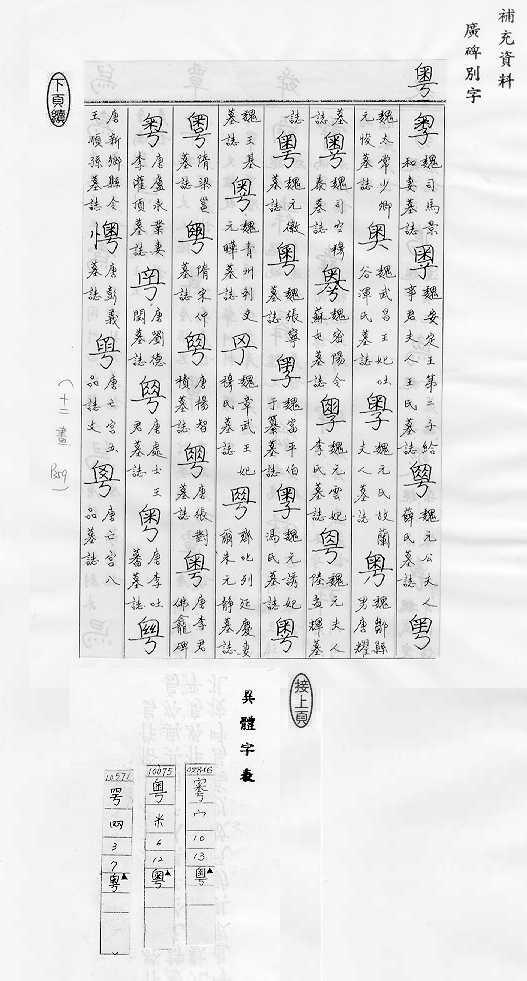 補充資料
廣碑別字
粵
粵 魏司馬景和妻墓誌 粵 魏安定王第二子給事君夫人王氏墓誌 粵 魏元公夫人薛氏墓誌 粵
魏太常少卿元悛墓誌 粵 魏武昌王妃吐谷渾氏墓誌 粵 魏元氏故蘭夫人墓誌 粵 魏鄒縣男唐耀
墓誌 粵 魏司空穆泰墓誌 粵 魏密陽令蘇屯墓誌 粵 魏元雲妃李氏墓誌 粵 魏元夫人陸孟輝墓
誌 粵 魏元徽墓誌 粵 魏張寧墓誌 粵 魏富平伯于纂墓誌 粵 魏元誘妃馮氏墓誌 粵
魏王基墓誌 粵 魏青州刺史元曄墓誌 粵 魏章武王妃穆氏墓誌 粵 齊比列延慶妻爾朱元靜墓誌
粵 隋梁邕墓誌 粵 隋宋仲墓誌 粵 唐楊智積墓誌 粵 唐張對墓誌 粵 唐李君佛龕碑
粵 唐盧承業妻李灌頂墓誌 粵 唐劉德閏墓誌 粵 唐處士王君墓誌 粵 唐李吐蕃墓誌 粵
唐新鄉縣令王順孫墓誌 唐彭義墓誌 粵 唐亡宮五品誌文 粵 唐亡宮八品墓誌
(十二畫 P359)
下頁續
接上頁
異體字表
02846 宀 10 13 粵▲
10075 粵 米 6 12 粵▲
10571 网 3 7 粵▲